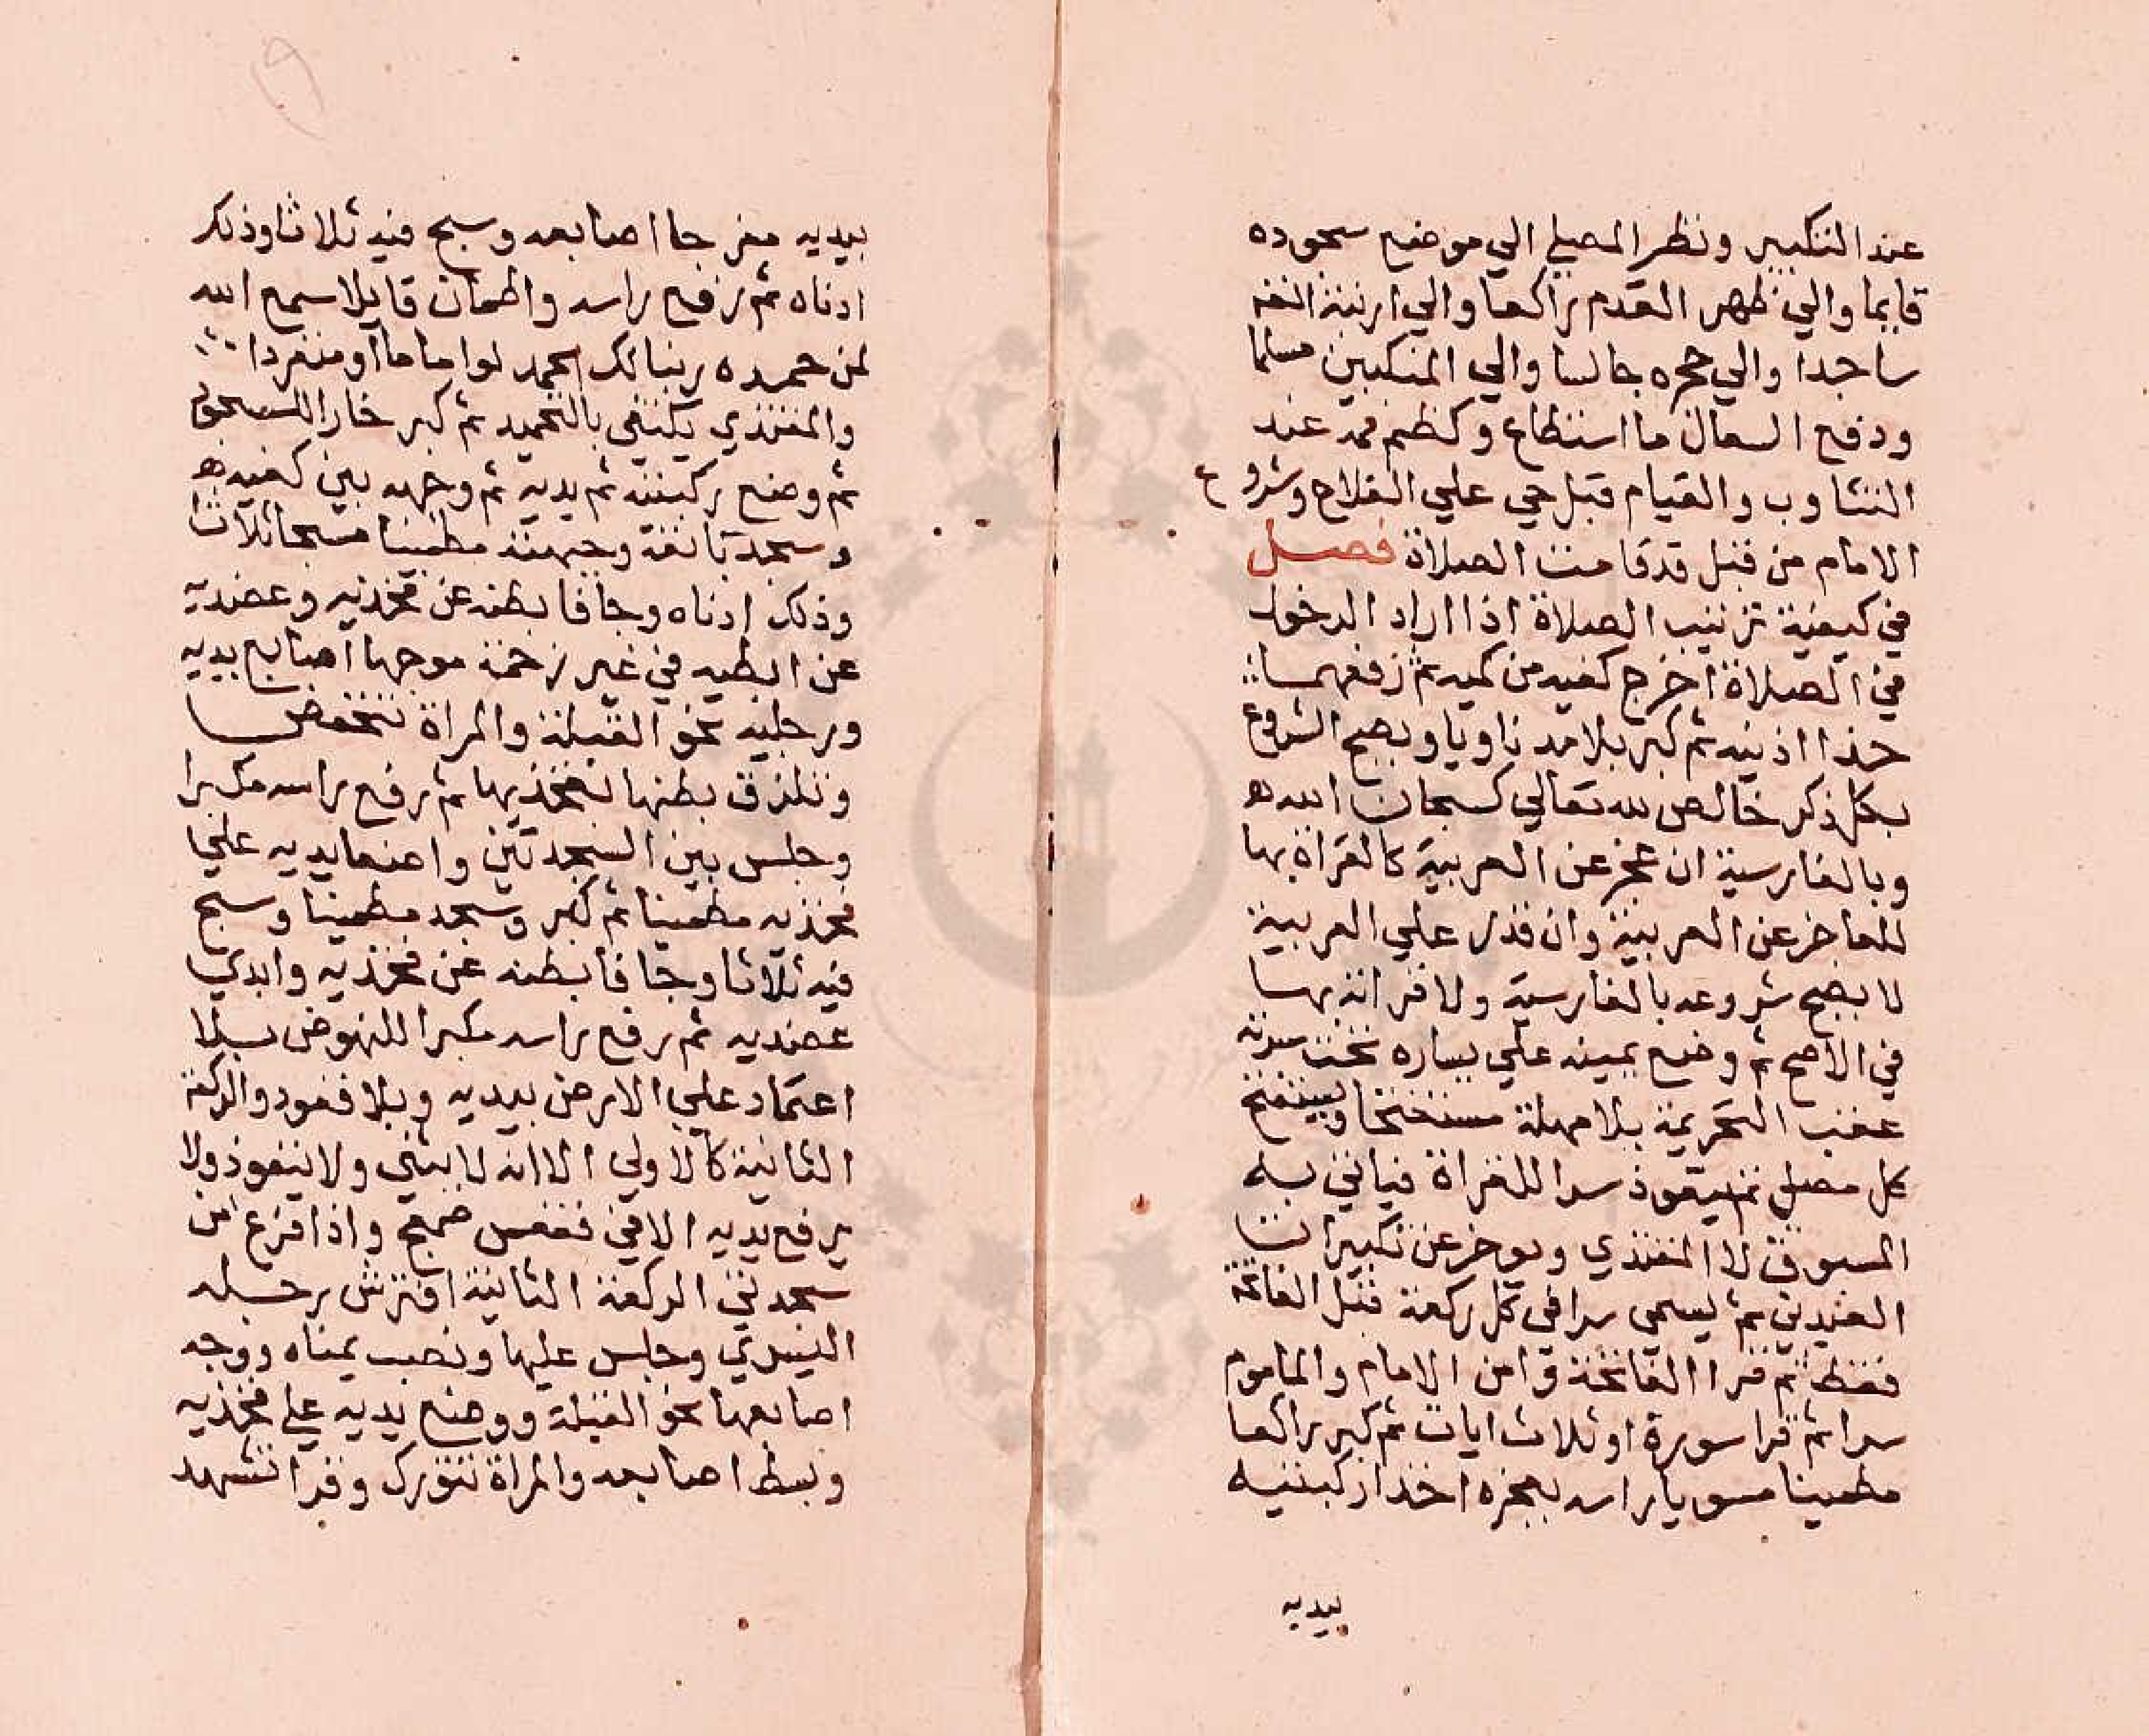 عند التكبير ونظر المصلي الي موضع سجوده
قايما والي ظهر القدم راكعا والي ارنبة انفه
ساجدا والي حجره جالسا والي المنكبين مسلما
ودفع السعال ما استطاع وكظم فمه عند
التثاوب والقيام قبل حي علي الفلاح وشروع
الامام من قبل قد قامت الصلاة فصل
في كيفية ترتيب الصلاة اذا اراد الدخول
في الصلاة اخرج كفيه من كميه ثم رفعهما
حذا اذنيه ثم كبر بلا مد ناويا ويصح الشروع
بكل ذكر خالص لله تعالي كسبحان الله
وبالفارسية ان عجز عن العربية كالقراة بها
للعاجز عن العربية وان قدر علي العربية
لا يصح شروعه بالفارسية ولا قراته بها
في الاصح ثم وضع يمينه علي يساره تحت سرته
عقب التحريمة بلا مهلة مستفتحا ويستفتح
كل مصل ثم يتعوذ سرا للقراة فياتي به
المسبوق لا المقتدي ويوخر عن تكبيرات
العيدين ثم يسمي سرا في كل ركعة قبل الفاتحة
فقط ثم قرا الفاتحة وامن الامام والماموم
سرا ثم قرا سورة او ثلاث ايات ثم كبر راكعا
مطمينا مسويا راسه بعجزه اخذا ركبتيه
بيديه
بيديه مفرجا اصابعه وسبح فيه ثلاثا وذلك
ادناه ثم رفع راسه واطمان قايلا سمع الله
لمن حمده ربنا لك الحمد لو اماما او منفردا
والمقتدي يكتفي بالتحميد ثم كبر خارا للسجود
ثم وضع ركبتيه ثم يديه ثم وجهه بين كفيه
وسجد بانفه وجبهته مطمينا مسبحا ثلاثا
وذلك ادناه وجافا بطنه عن فخذيه وعضديه
عن ابطيه في غير زحمة موجها اصابع يديه
ورجليه نحو القبلة والمراة تنخفض
وتلزق بطنها بفخذيها ثم رفع راسه مكبرا
وجلس بين السجدتين واضعا يديه علي
فخذيه مطمينا ثم كبر وسجد مطمينا وسبح
فيه ثلاثا وجافا بطنه عن فخذيه وابدي
عضديه ثم رفع راسه مكبرا للنهوض بلا
اعتماد علي الارض بيديه وبلا قعود والركعة
الثانية كالاولي الا انه لا يثني ولا يتعوذ ولا
يرفع يديه الا في فقعس صمعج واذا فرغ من
سجدتي الركعة الثانية افترش رجله
اليسري وجلس عليها ونصب يمناه ووجه
اصابعها نحو القبلة ووضع يديه علي فخذيه
وبسط اصابعه والمراة تتورك وقرا تشهد